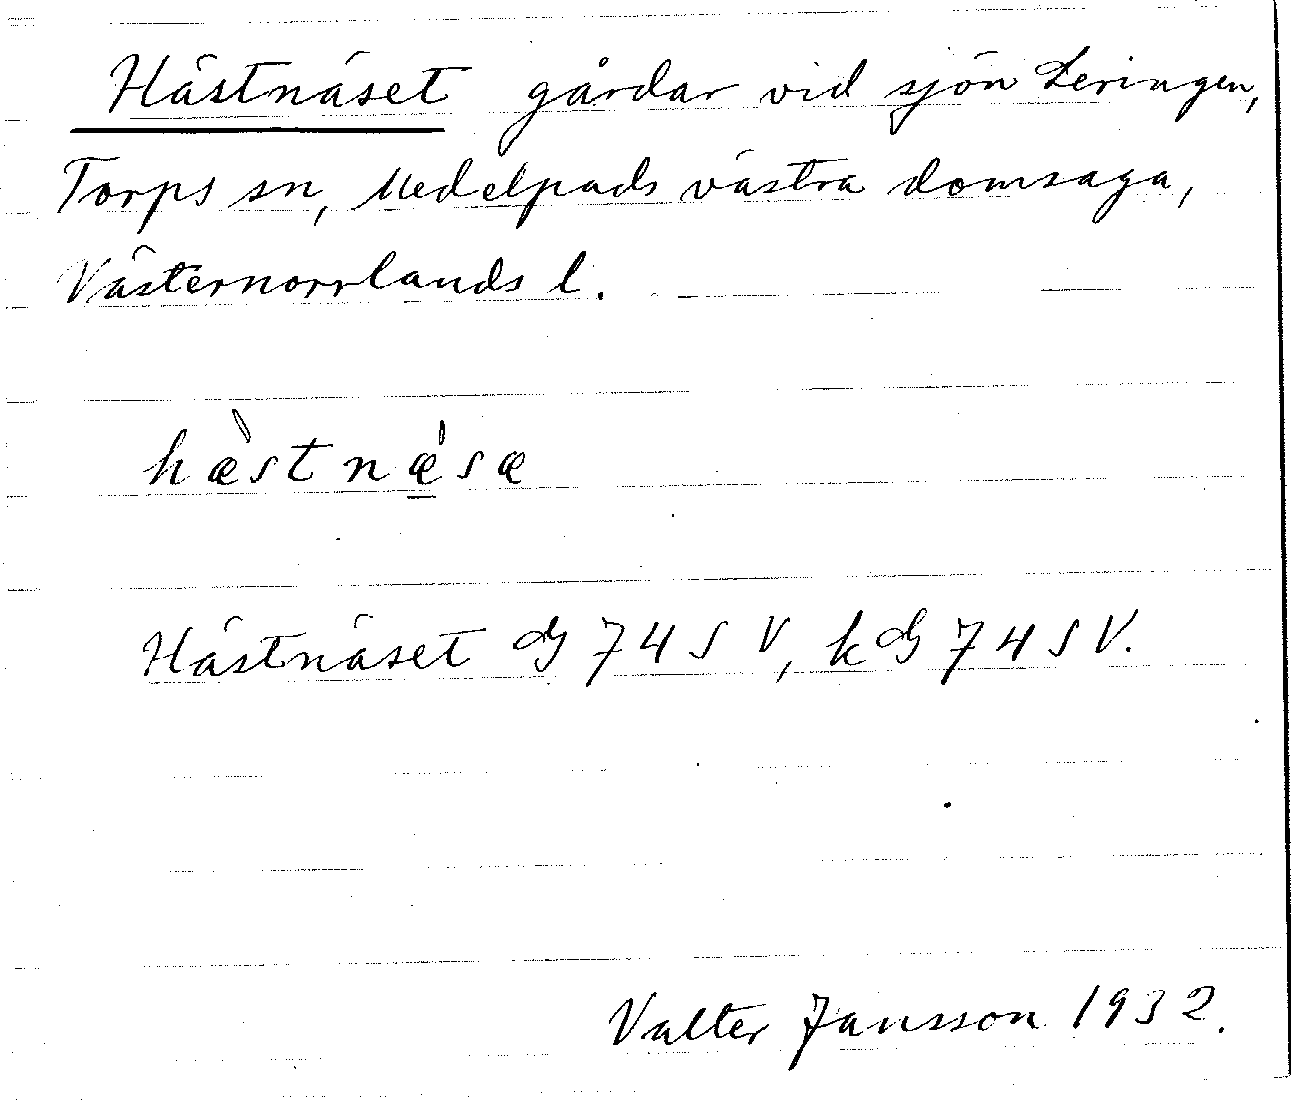 Hästnäset gårdar vid sjön Leringen,
Torps sn, Medelpads västra domsaga,
Västernorrlands l.
hæ̀stnæ̲̍sæ
Hästnäset dG 74 S V, k dG 74 S V.
Valter Jansson 1932.